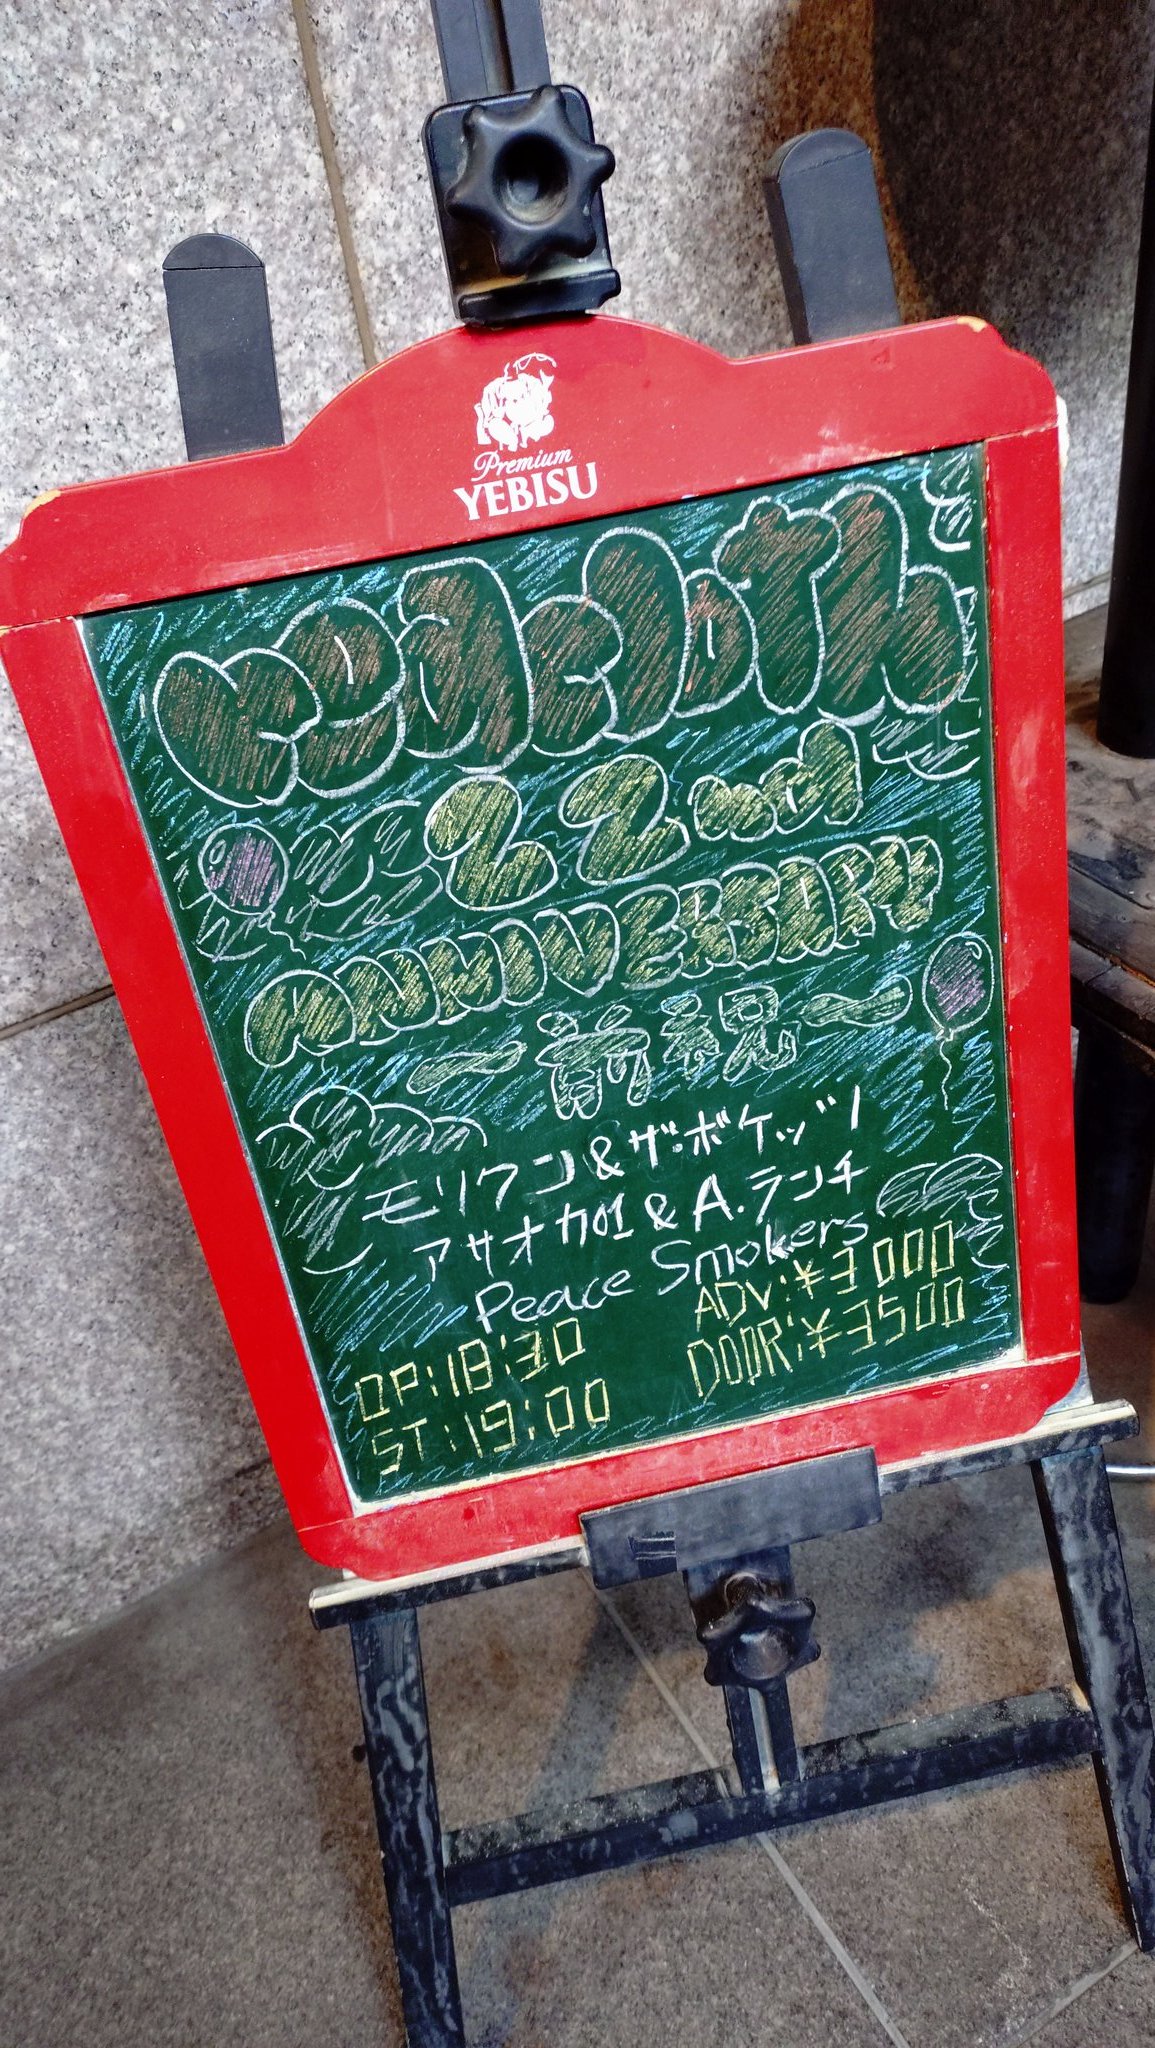 Premium
YEBISU
22nd
ANNIVERSARY
〜前祝〜
モリワン&ザ・ボケッツ
アサオカ加1&A.ランチ
Peace Smokers
OP:18:30
ADV:¥3000
ST:19:00
DOOR:¥3500